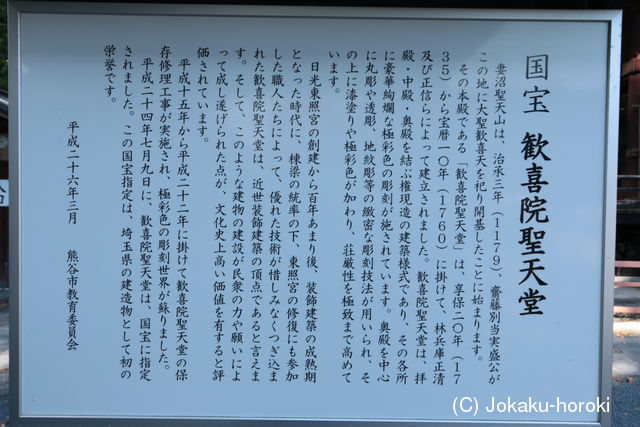 国宝 歓喜院聖天堂
妻沼聖天山は、治承三年（1179）、齋藤別当実盛公が
この地に大聖歓喜天を祀り開基したことに始まります。
その本殿である「歓喜院聖天堂」は、享保二〇年（17
35）から宝暦一〇年（1760）に掛けて、林兵庫正清
及び正信らによって建立されました。歓喜院聖天堂は、拝
殿・中殿・奥殿を結ぶ権現造の建築様式であり、その各所
に豪華絢爛な極彩色の彫刻が施されています。奥殿を中心
に丸彫や透彫、地紋彫等の緻密な彫刻技法が用いられ、そ
の上に漆塗りや極彩色が加わり、荘厳性を極致まで高めて
います。
日光東照宮の創建から百年あまり後、装飾建築の成熟期
となった時代に、棟梁の統率の下、東照宮の修復にも参加
した職人たちによって、優れた技術が惜しみなくつぎ込ま
れた歓喜院聖天堂は、近世装飾建築の頂点であると言えま
す。そして、このような建物の建設が民衆の力や願いによ
って成し遂げられた点が、文化史上高い価値を有すると評
価されています。
平成十五年から平成二十二年に掛けて歓喜院聖天堂の保
存修理工事が実施され、極彩色の彫刻世界が蘇りました。
平成二十四年七月九日に、歓喜院聖天堂は、国宝に指定
されました。この国宝指定は、埼玉県の建造物として初の
栄誉です。
平成二十六年三月 熊谷市教育委員会
(C) Jokaku-horoki